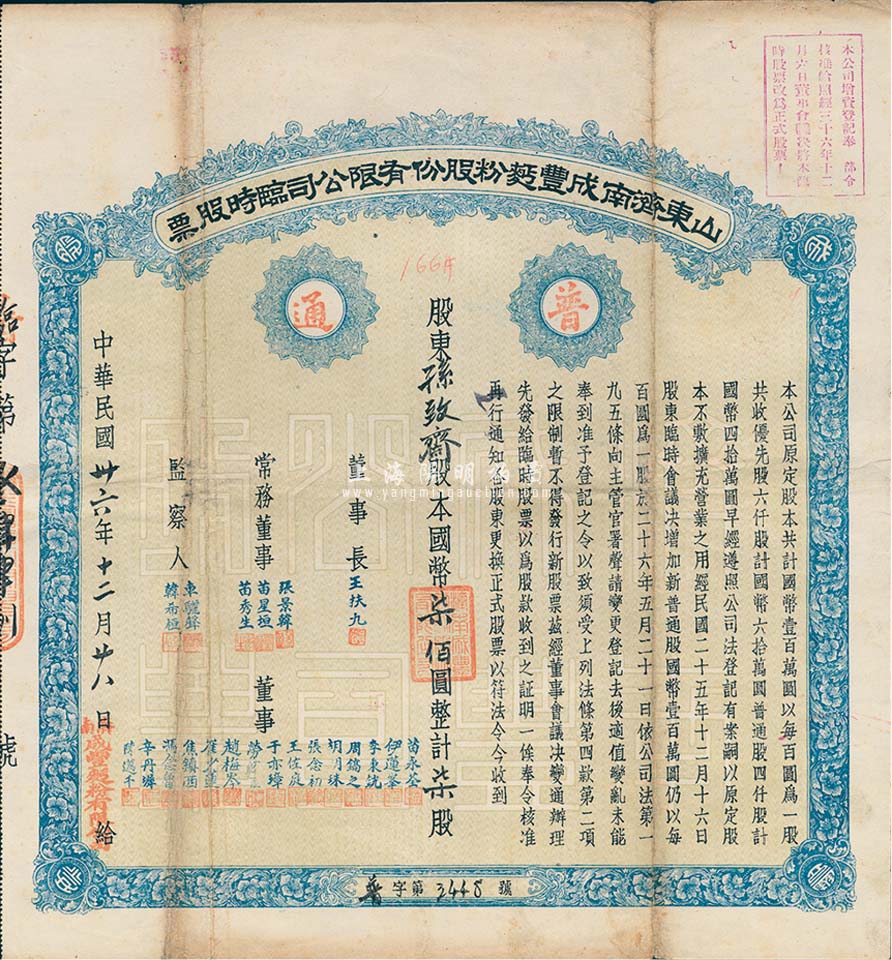 本公司增資登記奉 部令
核准給照經三十六年十二
月六日董事會議決將本臨
時股票改為正式股票
山東濟南成豐麪粉股份有限公司臨時股票
普
通
166#
本公司原定股本共計國幣壹百萬圓以每百圓爲一股
共收優先股六仟股計國幣六拾萬圓普通股四仟股計
國幣四拾萬圓早經遵照公司法登記有案嗣以原定股
本不敷擴充營業之用經民國二十五年十二月十六日
股東臨時會議决增加新普通股國幣壹百萬圓仍以每
百圓爲一股於二十六年五月二十一日依公司法第一
九五條向主管官署聲請變更登記去後適值變亂未能
奉到准予登記之令以致須受上列法條第四款第二項
之限制暫不得發行新股票茲經董事會議决變通辦理
先發給臨時股票以爲股款收到之証明一俟奉令核准
再行通知各股東更換正式股票以符法令今收到
股東孫致齋股本國幣柒佰圓整計柒股
董事長 王扶九
常務董事 張景韓 苗星垣 苗秀生
董事 苗永荃 伊蓮峯 李東銑 周鑄之 胡月珠 張念初 王佐庭 于亦璋 趙梅岑 焦鎮西 辛丹墀
監察人 韓希恒
中華民國卅六年十二月廿八日 給
臨字第 號
普字第3448號
上海陽明拍賣
www.yangmingauction.com